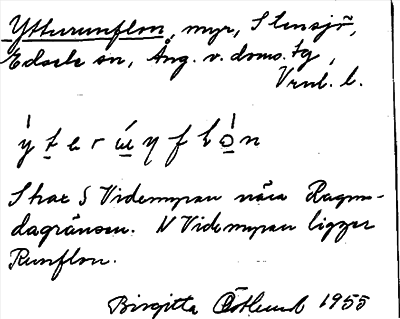 Ytterrunflon, myr, Stensjö,
Edsele sn, Ång. v. doms. tg,
Vrnl. l.
ýterẃŋflòn
S har S Videmyran nära Ragun-
dagränsen. N Videmyran ligger
Runflon.
Birgitta Östlund 1955